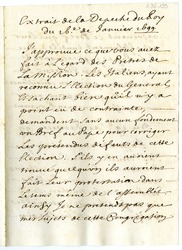 Extrait de la Depeche du Roy
du 26e. de Janvier 1699.
J'approuve ce que vous avez
fait a l'egard des Prêtres de
La Mission. Les Italiens ayant
reconnu l'Election du General,
Et sachant bien qu'il n'y a
point eu de contrainte,
demandent sans aucun fondement
un Bref au Pape pour corriger
Les pretendus defauts de cette
Election. S'ils y en avoient
trouvé quelqu'un ils auroient
fait Leur protestation dans
Le tems même de l'assemblée
ainsy Je ne pretends pas que
mes sujets de cette Congregation